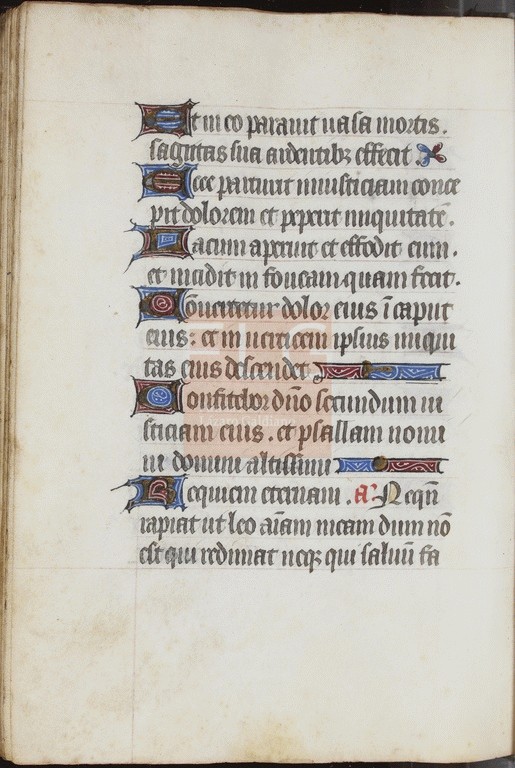 Et in eo parauit uasa mortis.
sagittas suas ardentibꝫ effecit
Ecce parturit iniusticiam conce
pit dolorem et peperit iniquitatē.
Lacum aperuit et effodit eum.
et incidit in foueam quam fecit.
Conuertetur dolor eius ī caput
eius: et in uerticem ipsius iniqui
tas eius descendet
Confitebor dn̄o secundum iu
sticiam eius. et psallam nomi
ni domini altissimi
Requiem eternam. a᷑ Neqn̄
rapiat ut leo aīam meam dum nō
est qui redimat neqꝫ qui saluū fa